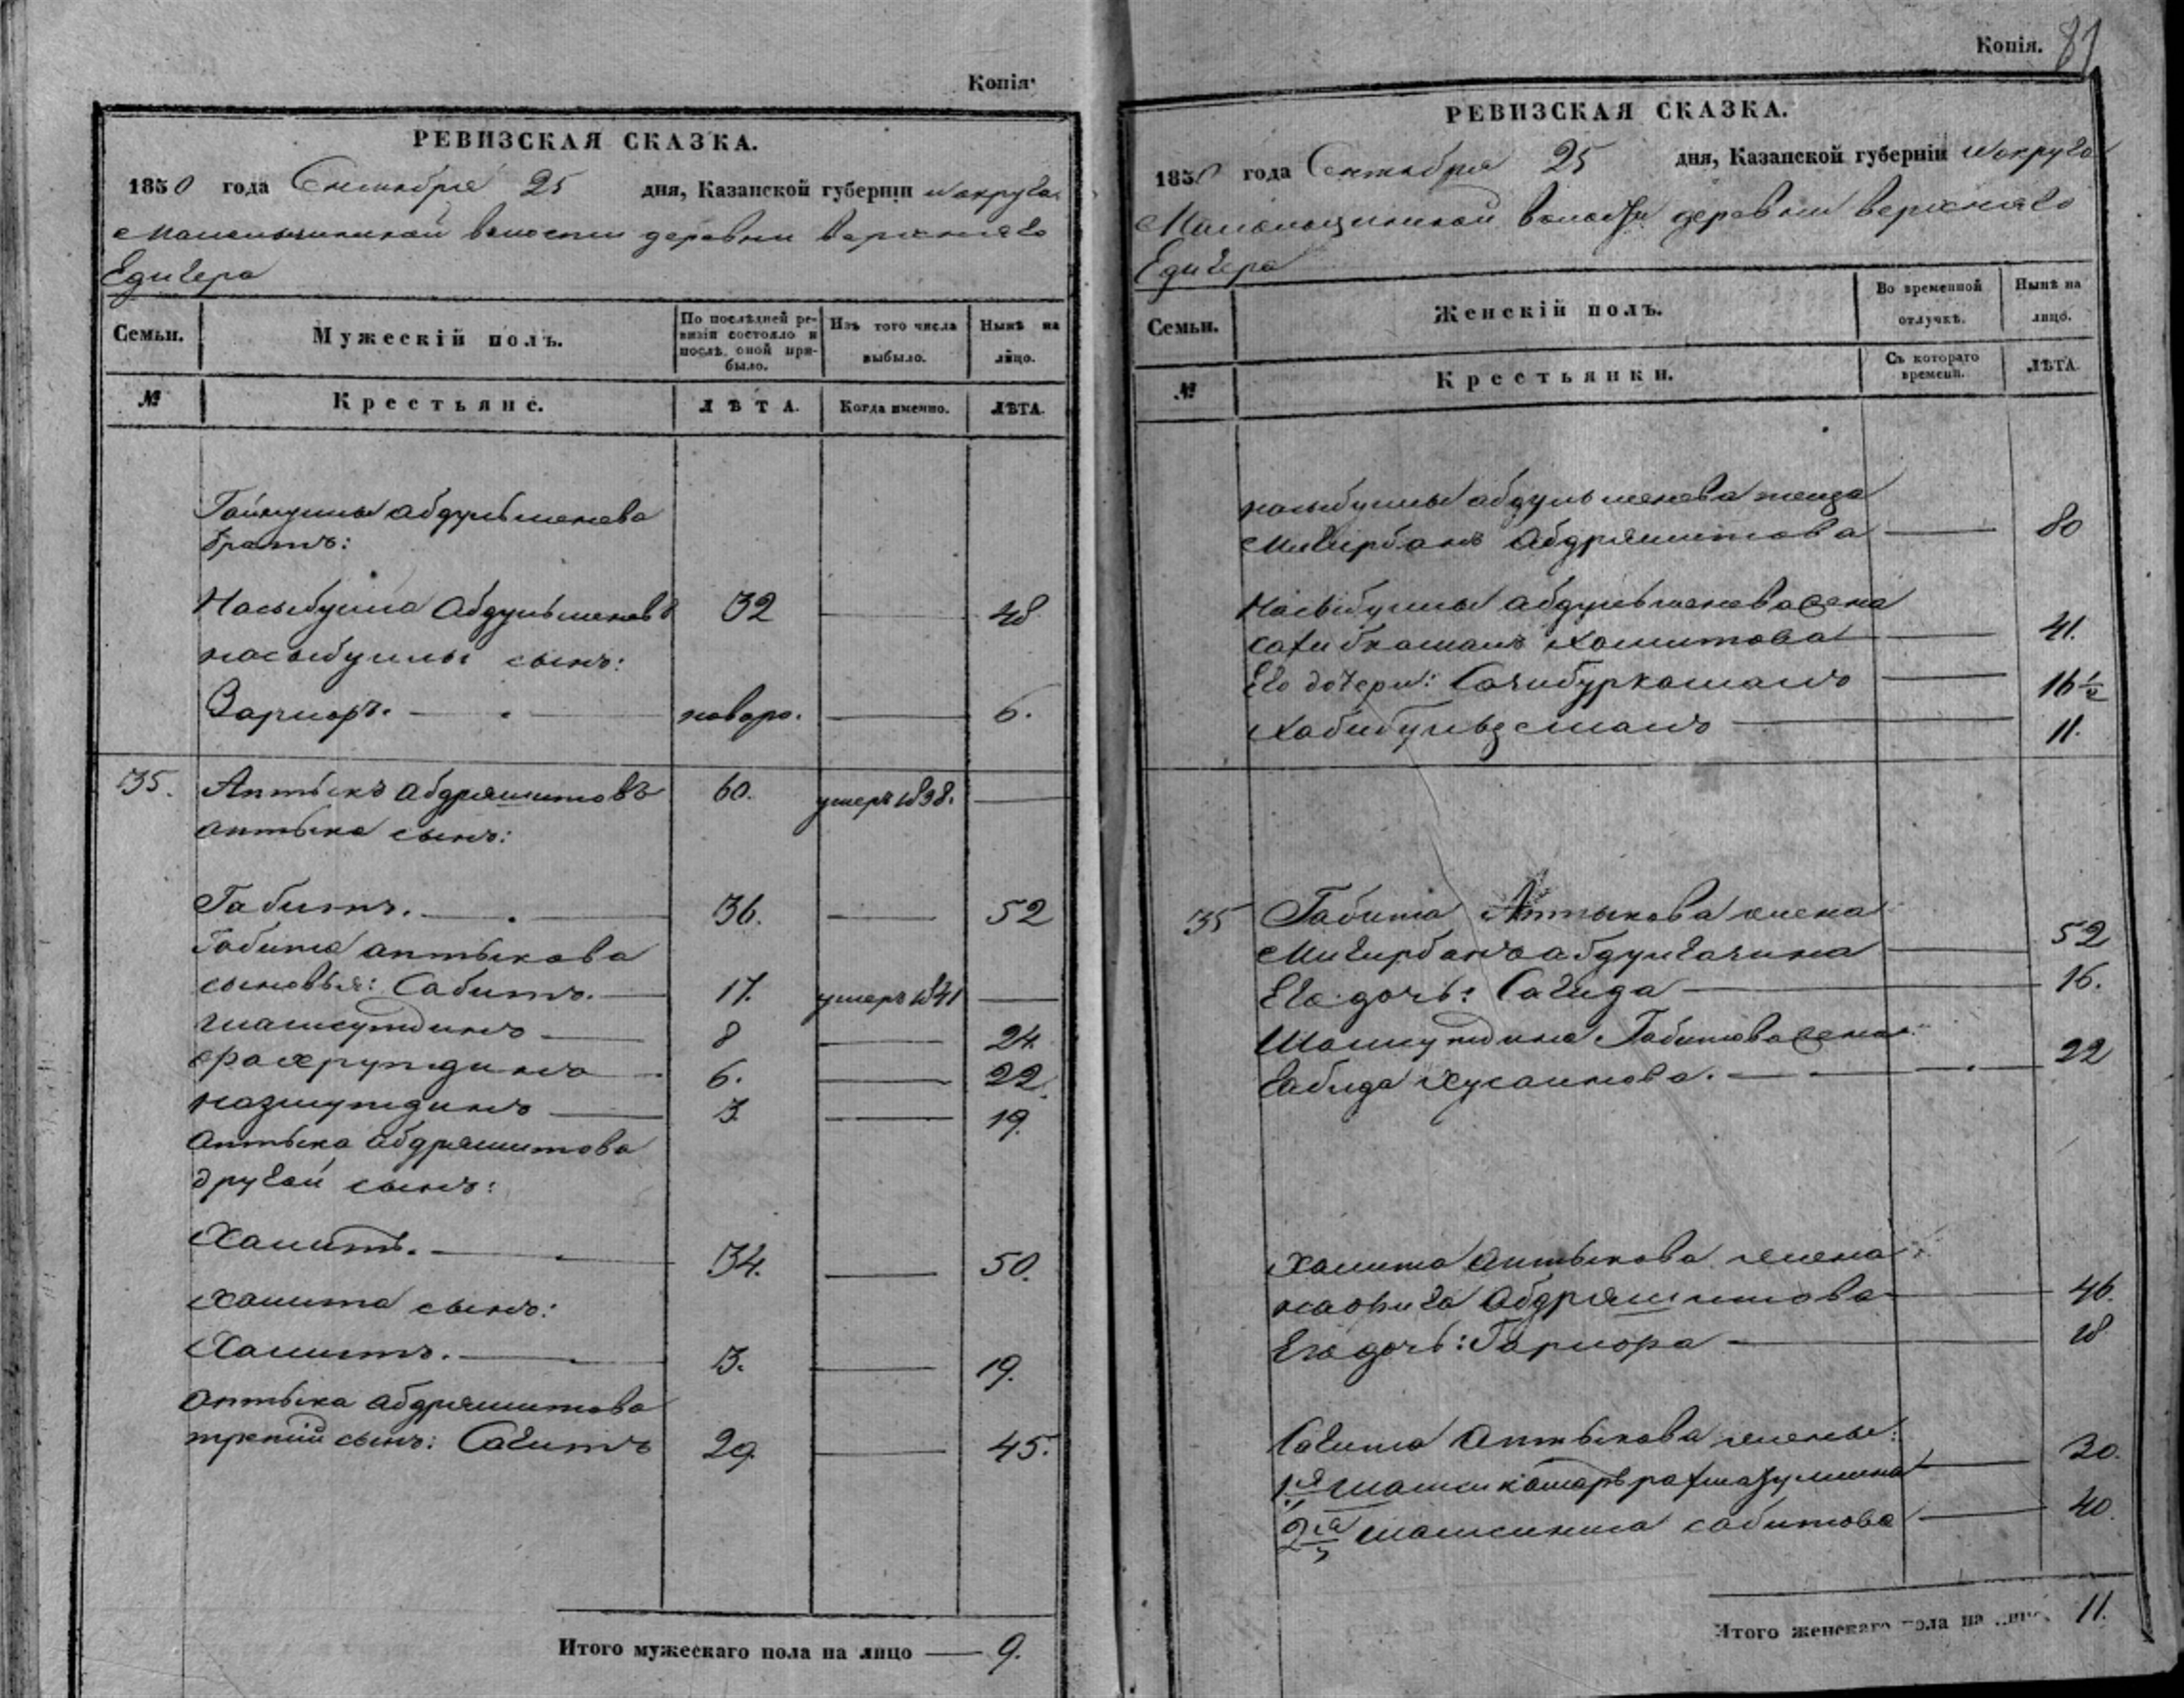 Копія.
РЕВИЗСКАЯ СКАЗКА.
1850 года Сентября 25 дня, Казанской губерніи и округа
волости деревни верхняго
Едигера
Семьи.
Мужескій полъ.
По послѣдней ревизіи состояло и послѣ оной прибыло.
Изъ того числа выбыло.
Нынѣ на лицо.
№
Крестьяне.
ЛѢТА.
Когда именно.
ЛѢТА.
абдульменева
братъ:
Насыбулла Абдульменевъ 32 — 48
насыбуллы сынъ:
новоро. — 6.
35. Аптыкъ абдряшитовъ 60. умеръ 1838. —
аптыка сынъ:
Габитъ. — 36. — 52
Габита аптыкова
сыновья: Сабитъ. — 17. умеръ 1841 —
шамсутдинъ — 8 — 24
фахрутдинъ — 6. — 22.
назмутдинъ — 3. — 19.
Аптыка абдряшитова
другой сынъ:
Хамитъ. — 34. — 50.
Хамита сынъ:
3. — 19.
Аптыка абдряшитова
третій сынъ: Сагитъ 29. — 45.
Итого мужескаго пола на лицо — 9.
Копія. 81
РЕВИЗСКАЯ СКАЗКА.
1850 года Сентября 25 дня, Казанской губерніи и округа
волости деревни верхняго
Едигера
Семьи.
Женскій полъ.
Во временной отлучкѣ.
Нынѣ на лицо.
№
Крестьянки.
Съ котораго времени.
ЛѢТА.
насыбуллы абдульменева
Мигирбанъ Абдряшитова — 80
Насыбуллы абдульменева жена
Хамитова — 41.
Его дочери: — 16 1/2
— 11.
35 Габита Аптыкова жена
Мигирбанъ — 52
Его дочь: Сагида — 16.
Шамсутдина Габитова жена:
Хусаинова. — 22
Хамита Аптыкова жена:
Абдряшитова — 46.
Его дочь: — 18
Сагита Аптыкова жены:
1я — 30.
2я сабитова — 40.
Итого женскаго пола на лицо 11.